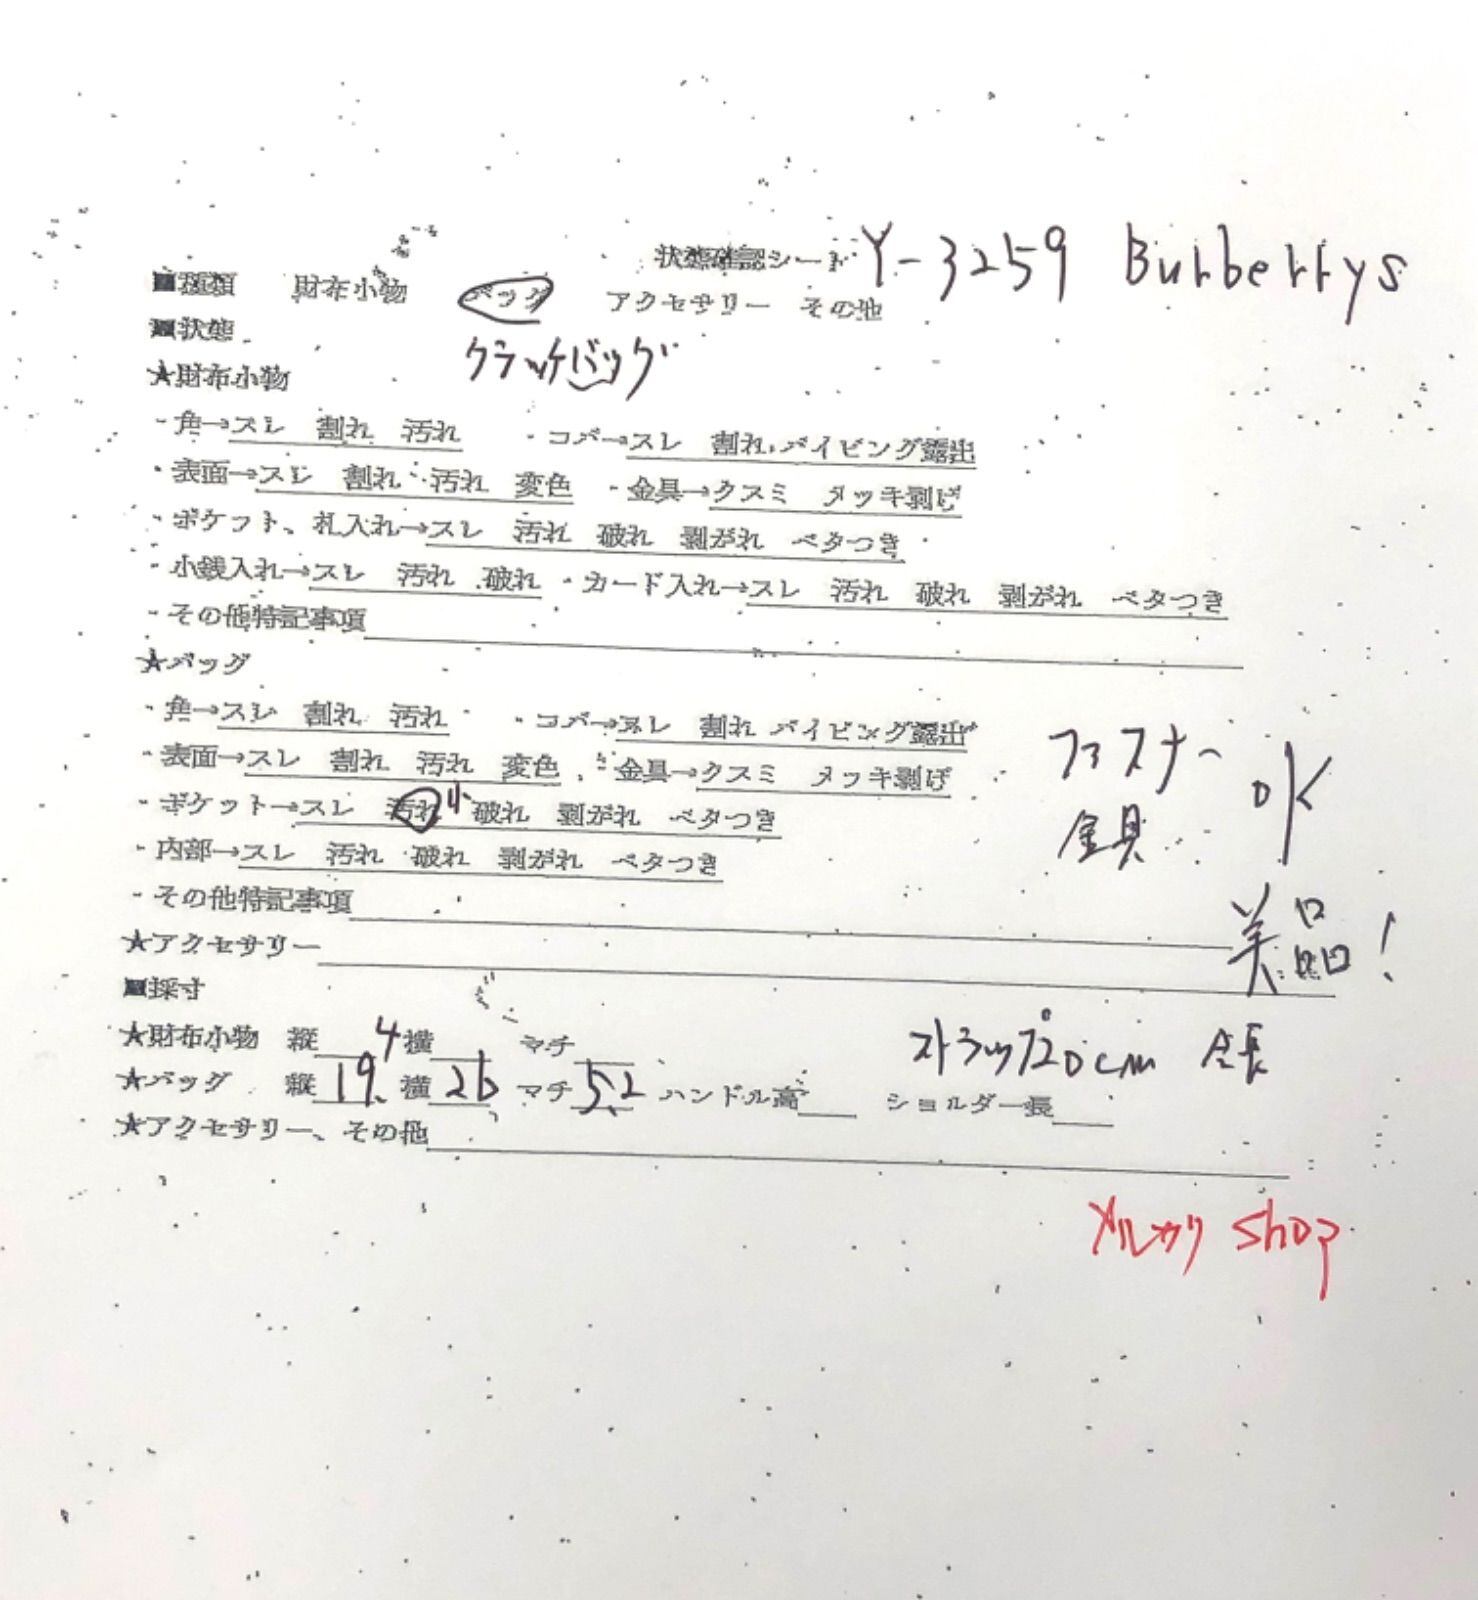 状態確認シート Y-3259 Burberrys
■種類 財布小物 バッグ アクセサリー その他
■状態 クラッチバッグ
★財布小物
・角→スレ 割れ 汚れ ・コバ→スレ 割れ パイピング露出
・表面→スレ 割れ 汚れ 変色 ・金具→クスミ メッキ剥げ
・ポケット、札入れ→スレ 汚れ 破れ 剥がれ ベタつき
・小銭入れ→スレ 汚れ 破れ ・カード入れ→スレ 汚れ 破れ 剥がれ ベタつき
・その他特記事項
★バッグ
・角→スレ 割れ 汚れ ・コバ→スレ 割れ パイピング露出
・表面→スレ 割れ 汚れ 変色 ・金具→クスミ メッキ剥げ
ファスナー
金具 OK
・ポケット→スレ 汚れ 小 破れ 剥がれ ベタつき
・内部→スレ 汚れ 破れ 剥がれ ベタつき
・その他特記事項
美品!
★アクセサリー
■採寸
★財布小物 縦 横 マチ
ストラップ20cm 全長
★バッグ 縦19. 横26 マチ ハンドル高 ショルダー長
★アクセサリー、その他
メルカリ shop